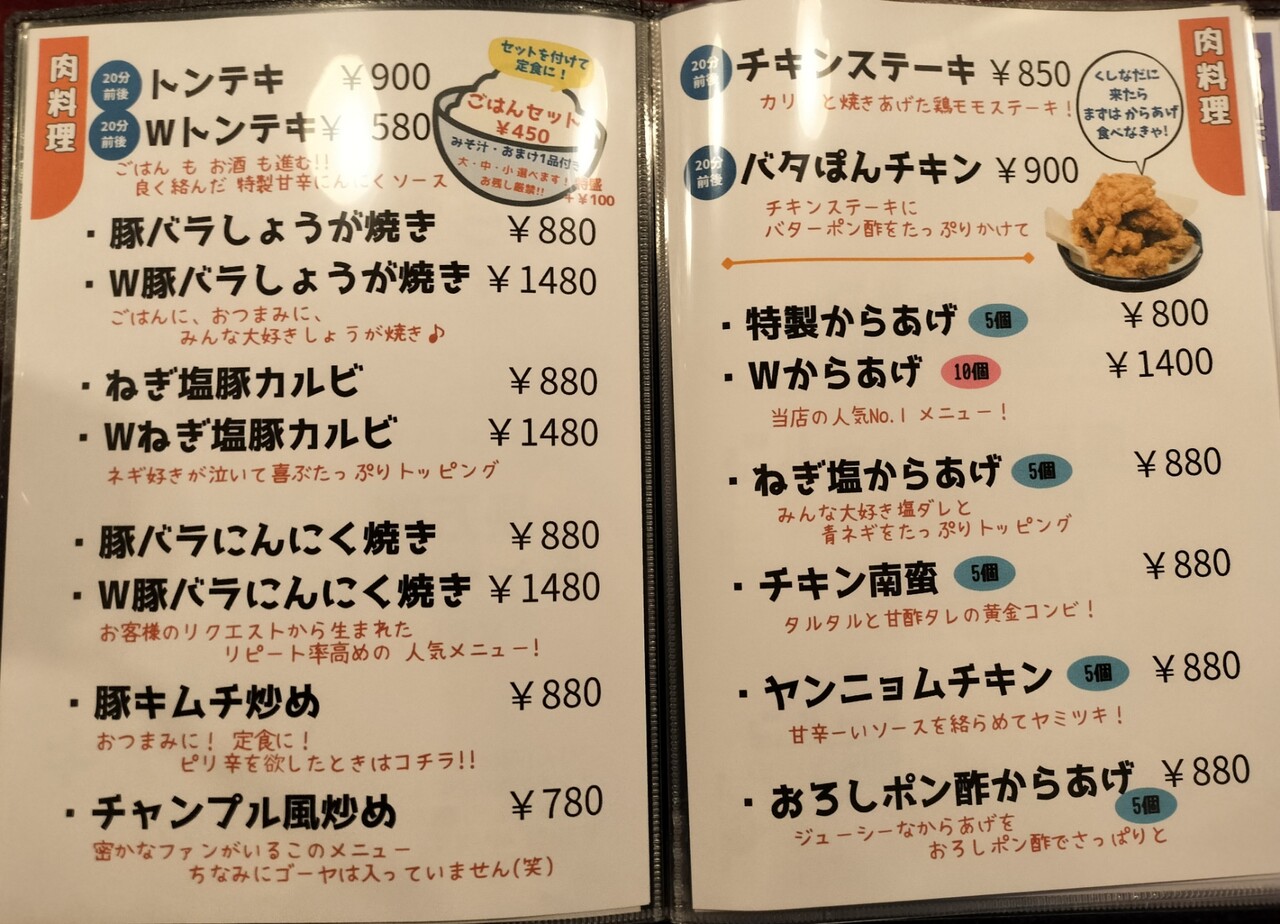 肉料理
20分前後
トンテキ ¥900
20分前後
Wトンテキ¥ 580
ごはん も お酒 も進む!!
良く絡んだ 特製甘辛にんにくソース
セットを付けて
定食に!
ごはんセット
¥450
みそ汁・おまけ1品付き
大・中・小 選べます!
お残し厳禁!!
特盛
+¥100
・豚バラしょうが焼き ¥880
・W豚バラしょうが焼き ¥1480
ごはんに、おつまみに、
みんな大好きしょうが焼き♪
・ねぎ塩豚カルビ ¥880
・Wねぎ塩豚カルビ ¥1480
ネギ好きが泣いて喜ぶたっぷりトッピング
・豚バラにんにく焼き ¥880
・W豚バラにんにく焼き ¥1480
お客様のリクエストから生まれた
リピート率高めの 人気メニュー!
・豚キムチ炒め ¥880
おつまみに! 定食に!
ピリ辛を欲したときはコチラ!!
・チャンプル風炒め ¥780
密かなファンがいるこのメニュー
ちなみにゴーヤは入っていません(笑)
肉料理
20分前後
チキンステーキ ¥850
カリ と焼きあげた鶏モモステーキ!
くしなだに
来たら
まずは からあげ
食べなきゃ!
20分前後
バタぽんチキン ¥900
チキンステーキに
バターポン酢をたっぷりかけて
・特製からあげ 5個 ¥800
・Wからあげ 10個 ¥1400
当店の人気No.1 メニュー!
・ねぎ塩からあげ 5個 ¥880
みんな大好き塩ダレと
青ネギをたっぷりトッピング
・チキン南蛮 5個 ¥880
タルタルと甘酢タレの黄金コンビ!
・ヤンニョムチキン 5個 ¥880
甘辛ーいソースを絡らめてヤミツキ!
・おろしポン酢からあげ ¥880
5個
ジューシーなからあげを
おろしポン酢でさっぱりと